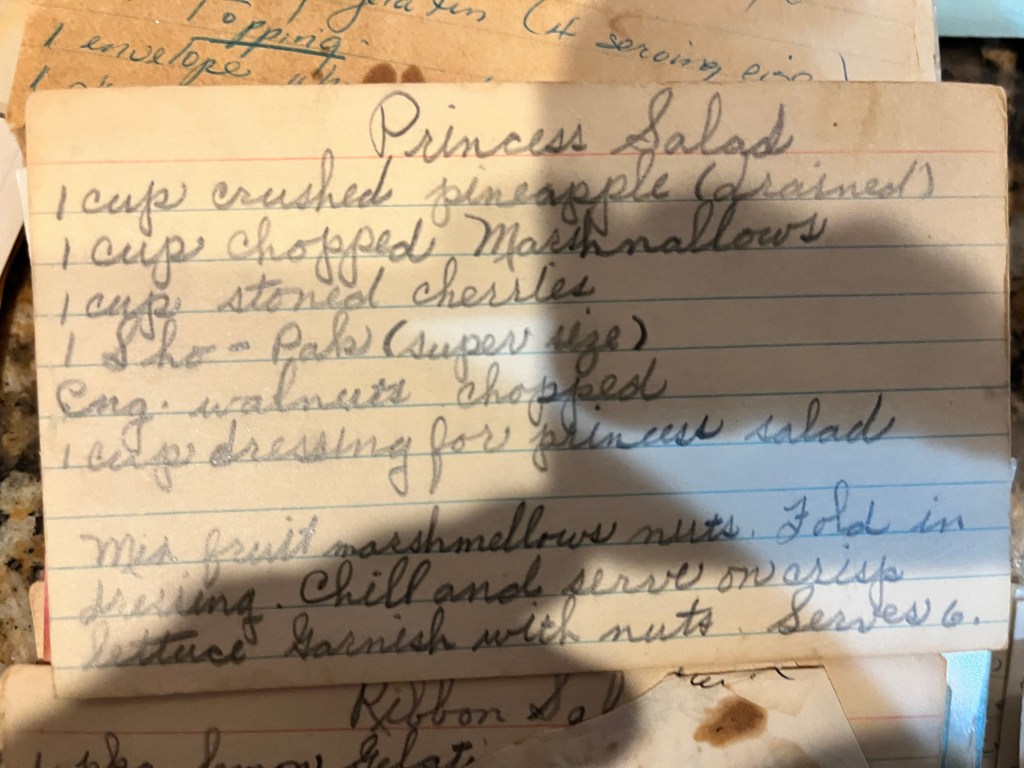 Topping. gelatin (4 serving size)
1 envelope
Princess Salad
1 cup crushed pineapple (drained)
1 cup chopped Marshnallows
1 cup stoned cherries
1 Sho-Pak (super size)
Eng. walnuts chopped
1 cup dressing for princess salad
Mix fruit marshmellows nuts. Fold in
dressing. Chill and serve on crisp
lettuce Garnish with nuts. Serves 6.
Ribbon Sal
1 pkg lemon Gelat